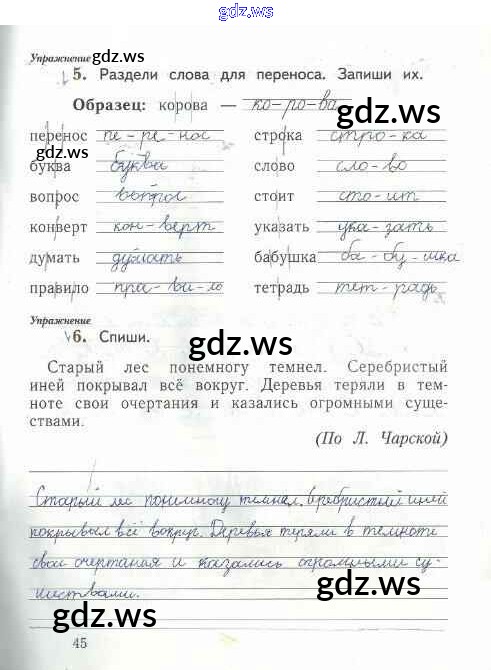 gdz.ws
Упражнение gdz.ws
5. Раздели слова для переноса. Запиши их.
Образец: корова — ко-ро-ва
gdz.ws
перенос пе-ре-нос строка стро-ка
gdz.ws
буква буква слово сло-во
вопрос вопрос стоит сто-ит
конверт кон-верт указать ука-зать
gdz.ws
думать думать бабушка ба-бу-шка
правило пра-ви-ло тетрадь тет-радь
Упражнение
6. Спиши. gdz.ws
Старый лес понемногу темнел. Серебристый
иней покрывал всё вокруг. Деревья теряли в тем-
ноте свои очертания и казались огромными суще-
ствами.
(По Л. Чарской)
gdz.ws
Старый лес понемногу темнел. Серебристый иней
покрывал всё вокруг. Деревья теряли в темноте
свои очертания и казались огромными су-
ществами.
gdz.ws gdz.ws
45
gdz.ws